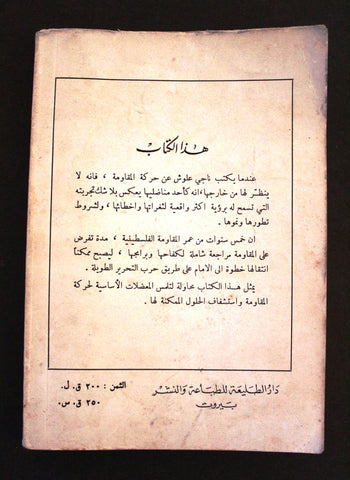 هذا الكتاب
عندما يكتب ناجي علوش عن حركة المقاومة ، فانه لا
ينظر لها من خارجها، انه كأحد مناضليها يعكس بلا شك تجربته
التي تسمح له برؤية اكثر واقعية لثغراتها واخطائها ، ولشروط
تطورها ونموها .
ان خمس سنوات من عمر المقاومة الفلسطينية ، مدة تفرض
على المقاومة مراجعة شاملة لكفاحها وبرامجها ، ليصبح ممكنا
انتقالها خطوة الى الامام على طريق حرب التحرير الطويلة .
يمثل هذا الكتاب محاولة لتلمس المعضلات الأساسية لحركة
المقاومة واستشفاف الحلول الممكنة لها .
دار الطليعة للطباعة والنشر
بيروت
الثمن : ٢٠٠ ق. ل.
٢٥٠ ق. س.